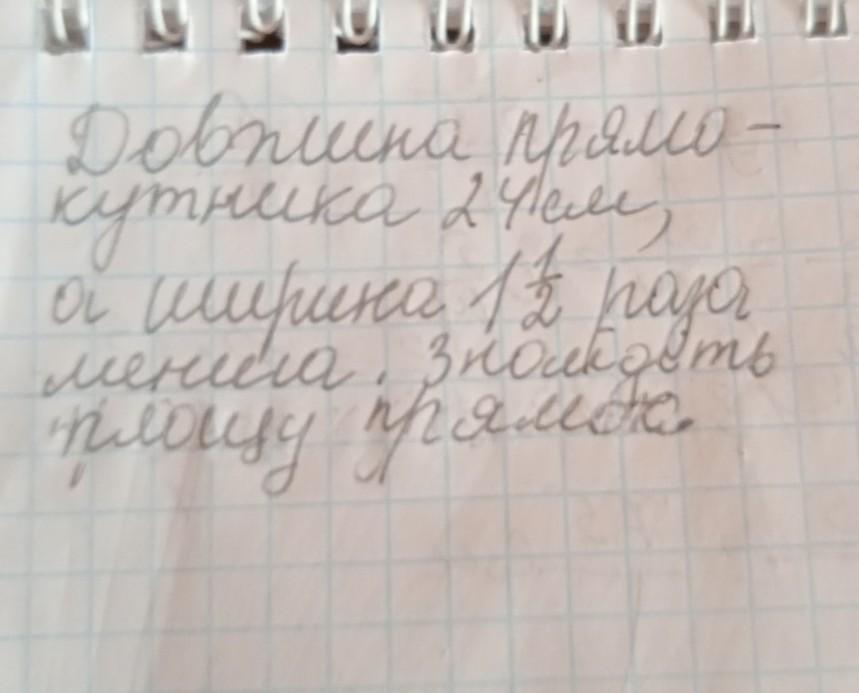 Довжина прямо-
кутника 24 см,
а ширина 1 1/2 раза
менша. Знайдеть
площу прямок.